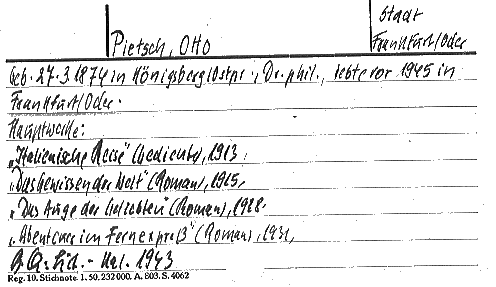 Stadt
Pietsch, Otto
Frankfurt/Oder
Geb. 27.3.1874 in Königsberg/Ostpr., Dr. phil., lebte vor 1945 in
Frankfurt/Oder.
Hauptwerke:
„Italienische Reise" (Gedichte), 1913,
„Das Gewissen der Welt" (Roman), 1925,
„Das Auge der Geliebten" (Roman), 1928,
„Abenteuer im Fernexpreß" (Roman), 1931,
1943
Reg. 10. Stichnote. 1. 50. 232000. A. 803. S. 4062